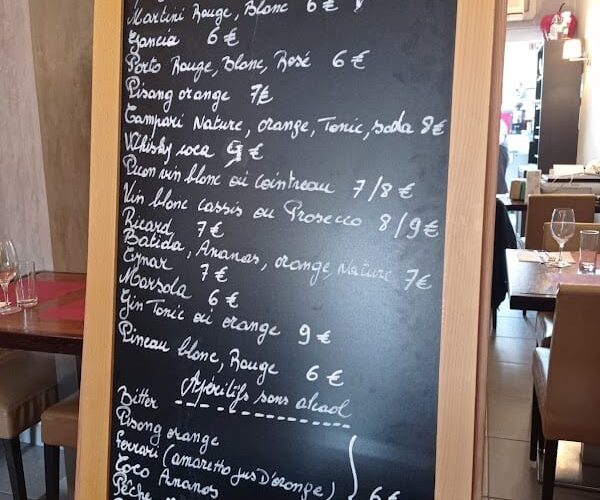 Martini Rouge, Blanc 6 €
Gancia 6 €
Porto Rouge, Blanc, Rosé 6 €
Pisang orange 7€
Campari Nature, orange, Tonic, soda 8€
Whisky coca 9 €
Picon vin blanc ou cointreau 7/8 €
Vin blanc cassis ou Prosecco 8/9€
Ricard 7€
Batida, Ananas, orange, Nature 7€
Cynar 7€
Marsala 6 €
Gin Tonic ou orange 9 €
Pineau blanc, Rouge 6 €
Apéritifs sans alcool
Bitter
Pisang orange
Ferrari (amaretto jus D'orange)
Coco Ananas 6 €
Pêche